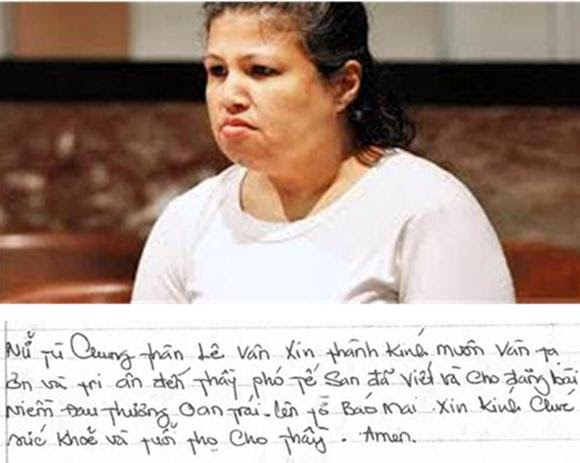 Nữ tù Chung thân Lê Vân Xin thành Kính muôn Vàn tạ
ơn và tri ân đến thầy phó tế San đã Viết và Cho đăng bài
Niềm Đau Thương Oan trái. Lên tờ Báo Mai. Xin Kính Chúc
sức khoẻ và tuổi thọ Cho thầy. Amen.